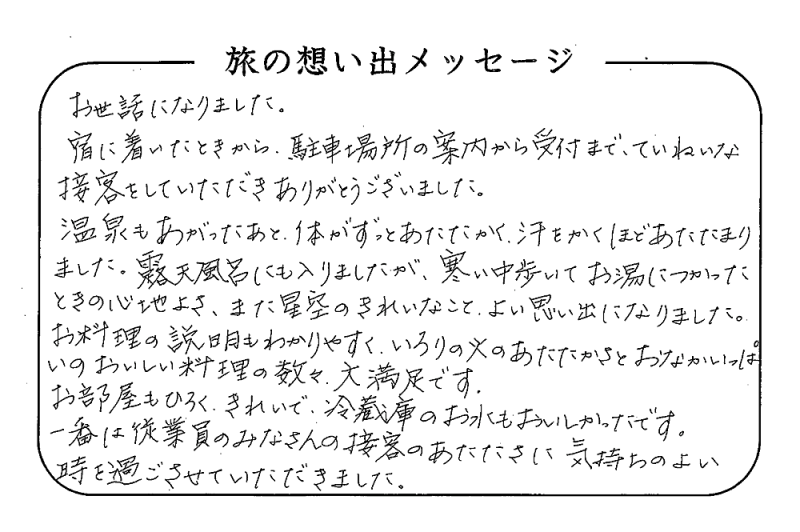 旅の想い出メッセージ
お世話になりました。
宿に着いたときから、駐車場所の案内から受付まで、ていねいな
接客をしていただきありがとうございました。
温泉もあがったあと、体がずっとあたたかく、汗をかくほどあたたまり
ました。露天風呂にも入りましたが、寒い中歩いてお湯につかった
ときの心地よさ、また星空のきれいなこと、よい思い出になりました。
お料理の説明もわかりやすく、いろりの火のあたたかさとおなかいっぱ
いのおいしい料理の数々、大満足です。
お部屋もひろく、きれいで、冷蔵庫のお水もおいしかったです。
一番は従業員のみなさんの接客のあたたさに気持ちのよい
時を過ごさせていただきました。